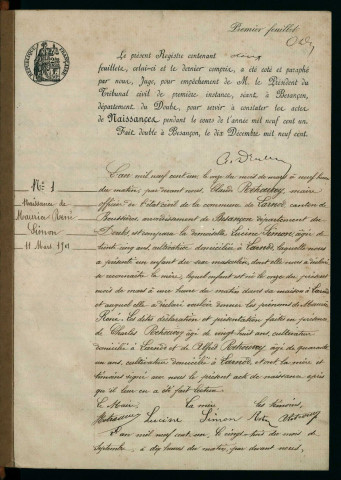 Premier feuillet
Le présent Registre contenant deux
feuillets, celui-ci et le dernier compris, a été coté et paraphé
par nous, Juge, pour empêchement de M. le Président du
Tribunal civil de première instance, séant à Besançon,
département du Doubs, pour servir à constater les actes de
Naissances pendant le cours de l'année mil neuf cent un
Fait double à Besançon, le dix Décembre mil neuf cent.
L'an mil neuf cent un le onze du mois de mars à neuf heures
du matin, par devant nous, Claude, maire
officier de l'état civil de la commune de Larnod, canton de
Boussières arrondissement de Besançon département du
Doubs est comparue la demoiselle Lucine Simon âgée de
vingt cinq ans cultivatrice domiciliée à Larnod, laquelle nous
a présenté un enfant du sexe masculin dont elle nous a déclaré
se reconnaître la mère, lequel enfant est né le onze du présent
mois de mars à une heure du matin dans sa maison à Larnod
et auquel elle a déclaré vouloir donner les prénoms de Maurice
René. Les dites déclaration et présentation faites en présence
de Charles âgé de vingt huit ans, cultivateur
domicilié à Larnod et de Alfred âgé de quarante
un ans, cultivateur domicilié à Larnod et ont la mère et
témoins signé avec nous le présent acte de naissance après
qu'il leur en a été fait lecture.
Le Maire La mère Les témoins
Lucine Simon
L'an mil neuf cent un, le vingt du mois de
Septembre, à dix heures du matin par devant nous,
N° 1
Naissance de
Maurice René
Simon
11 Mars 1901